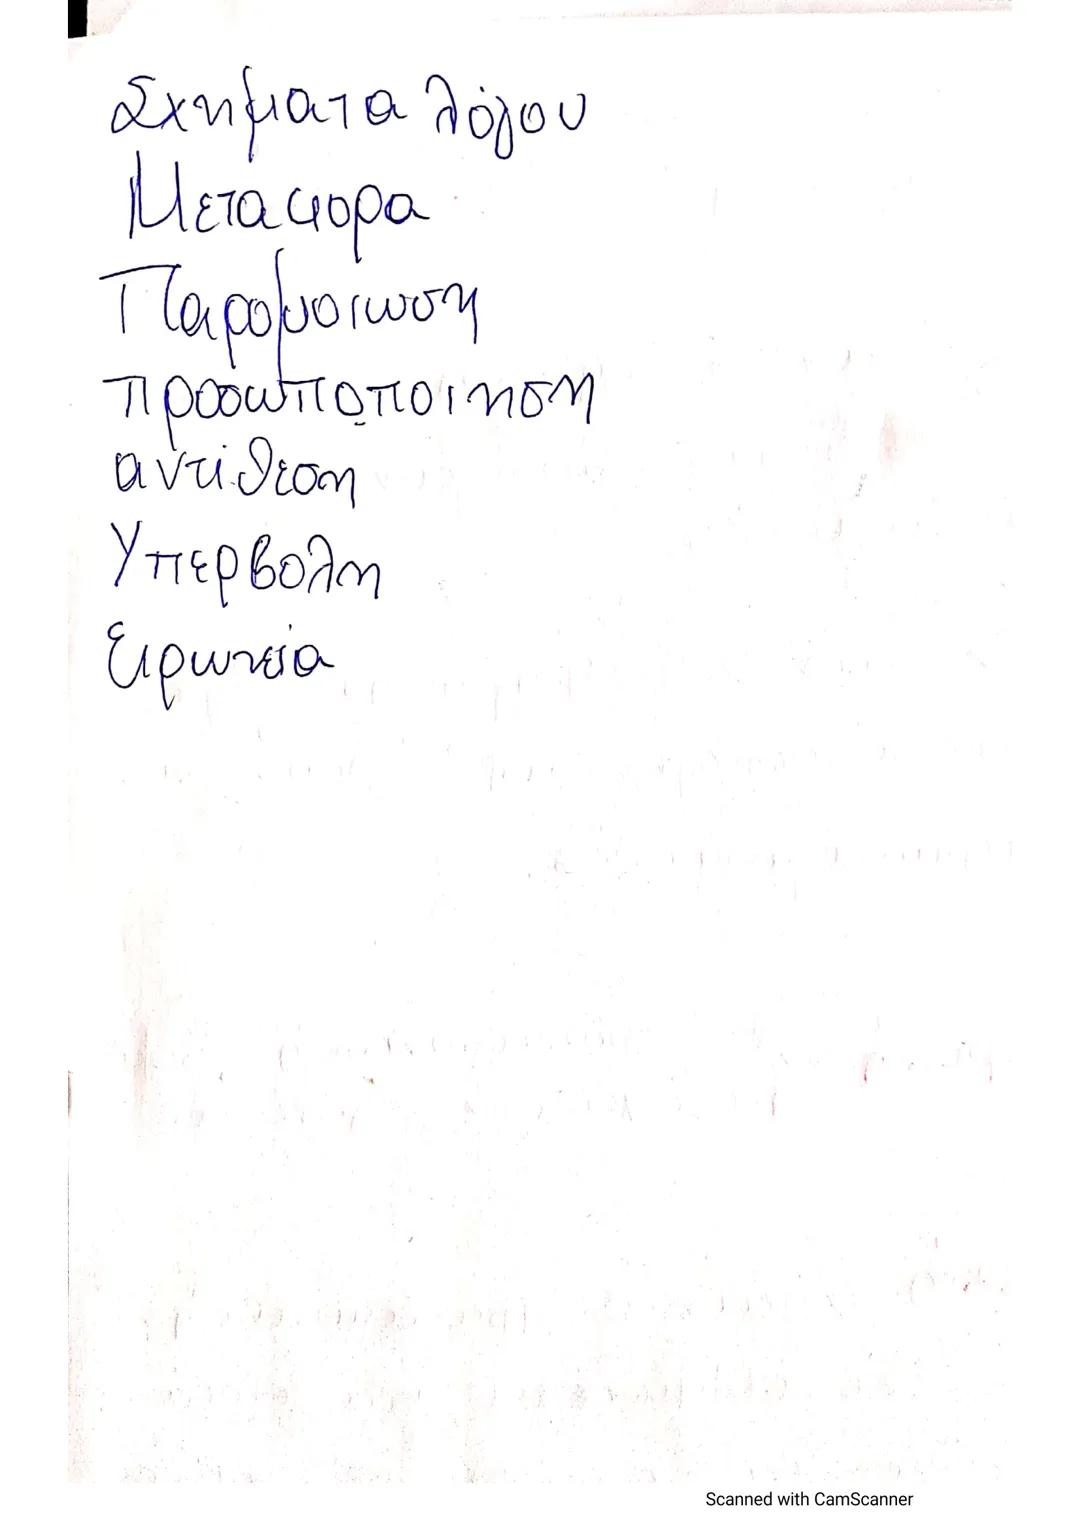 Σχηματα λόγου
Μεταφορα
Παρομοιωση
προσωποποιηση
αντίθεση
Υπερβολη
Ειρωνεία
Scanned with CamScanner